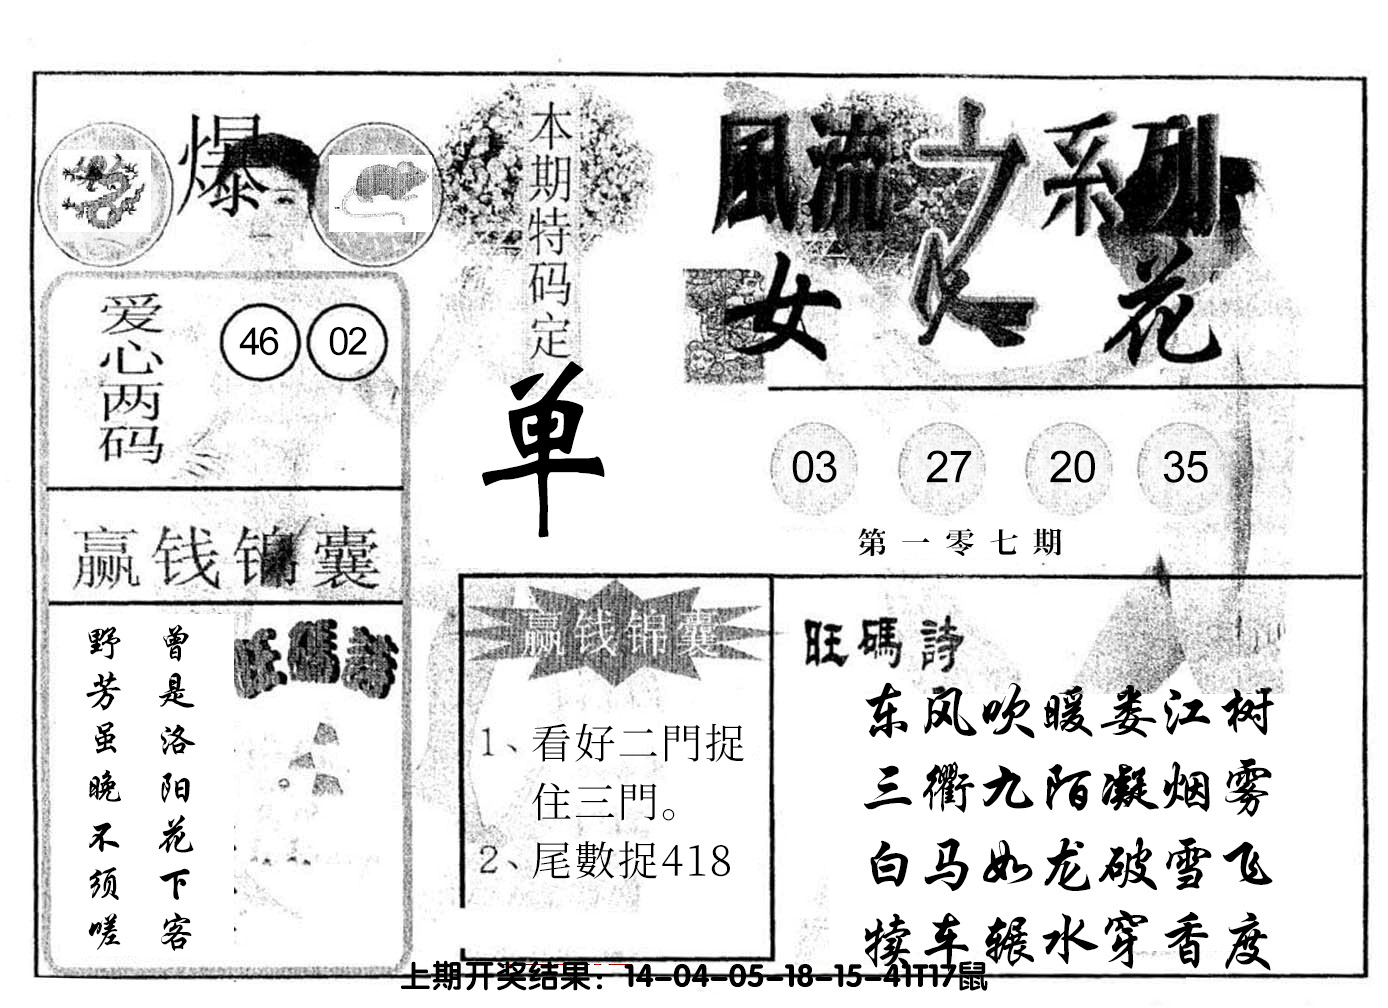 爆
本期特码定
单
風流之系列
女人花
爱心两码
46 02
03 27 20 35
第一零七期
赢钱锦囊
曾是洛阳花下客
野芳虽晚不须嗟
旺碼詩
赢钱锦囊
1、看好二門捉
住三門。
2、尾數捉418
旺碼詩
东风吹暖娄江树
三衢九陌凝烟雾
白马如龙破雪飞
犊车辗水穿香度
上期开奖结果：14-04-05-18-15-41T17鼠